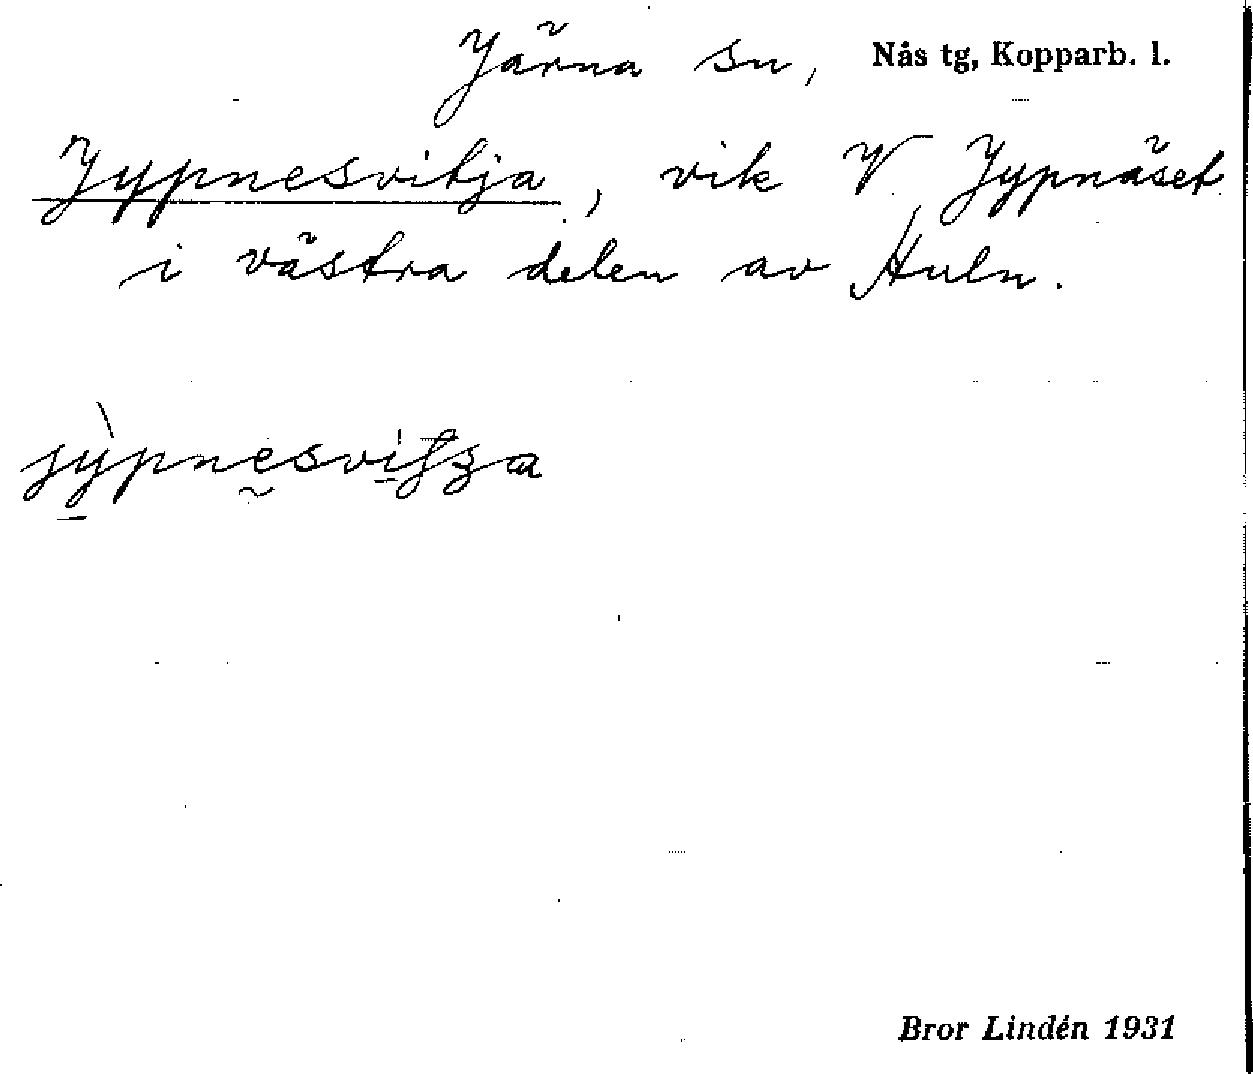 Järna sn, Nås tg, Kopparb. l.
Jypnesvitja, vik V Jypnäset
i västra delen av Huln.
Bror Lindén 1931